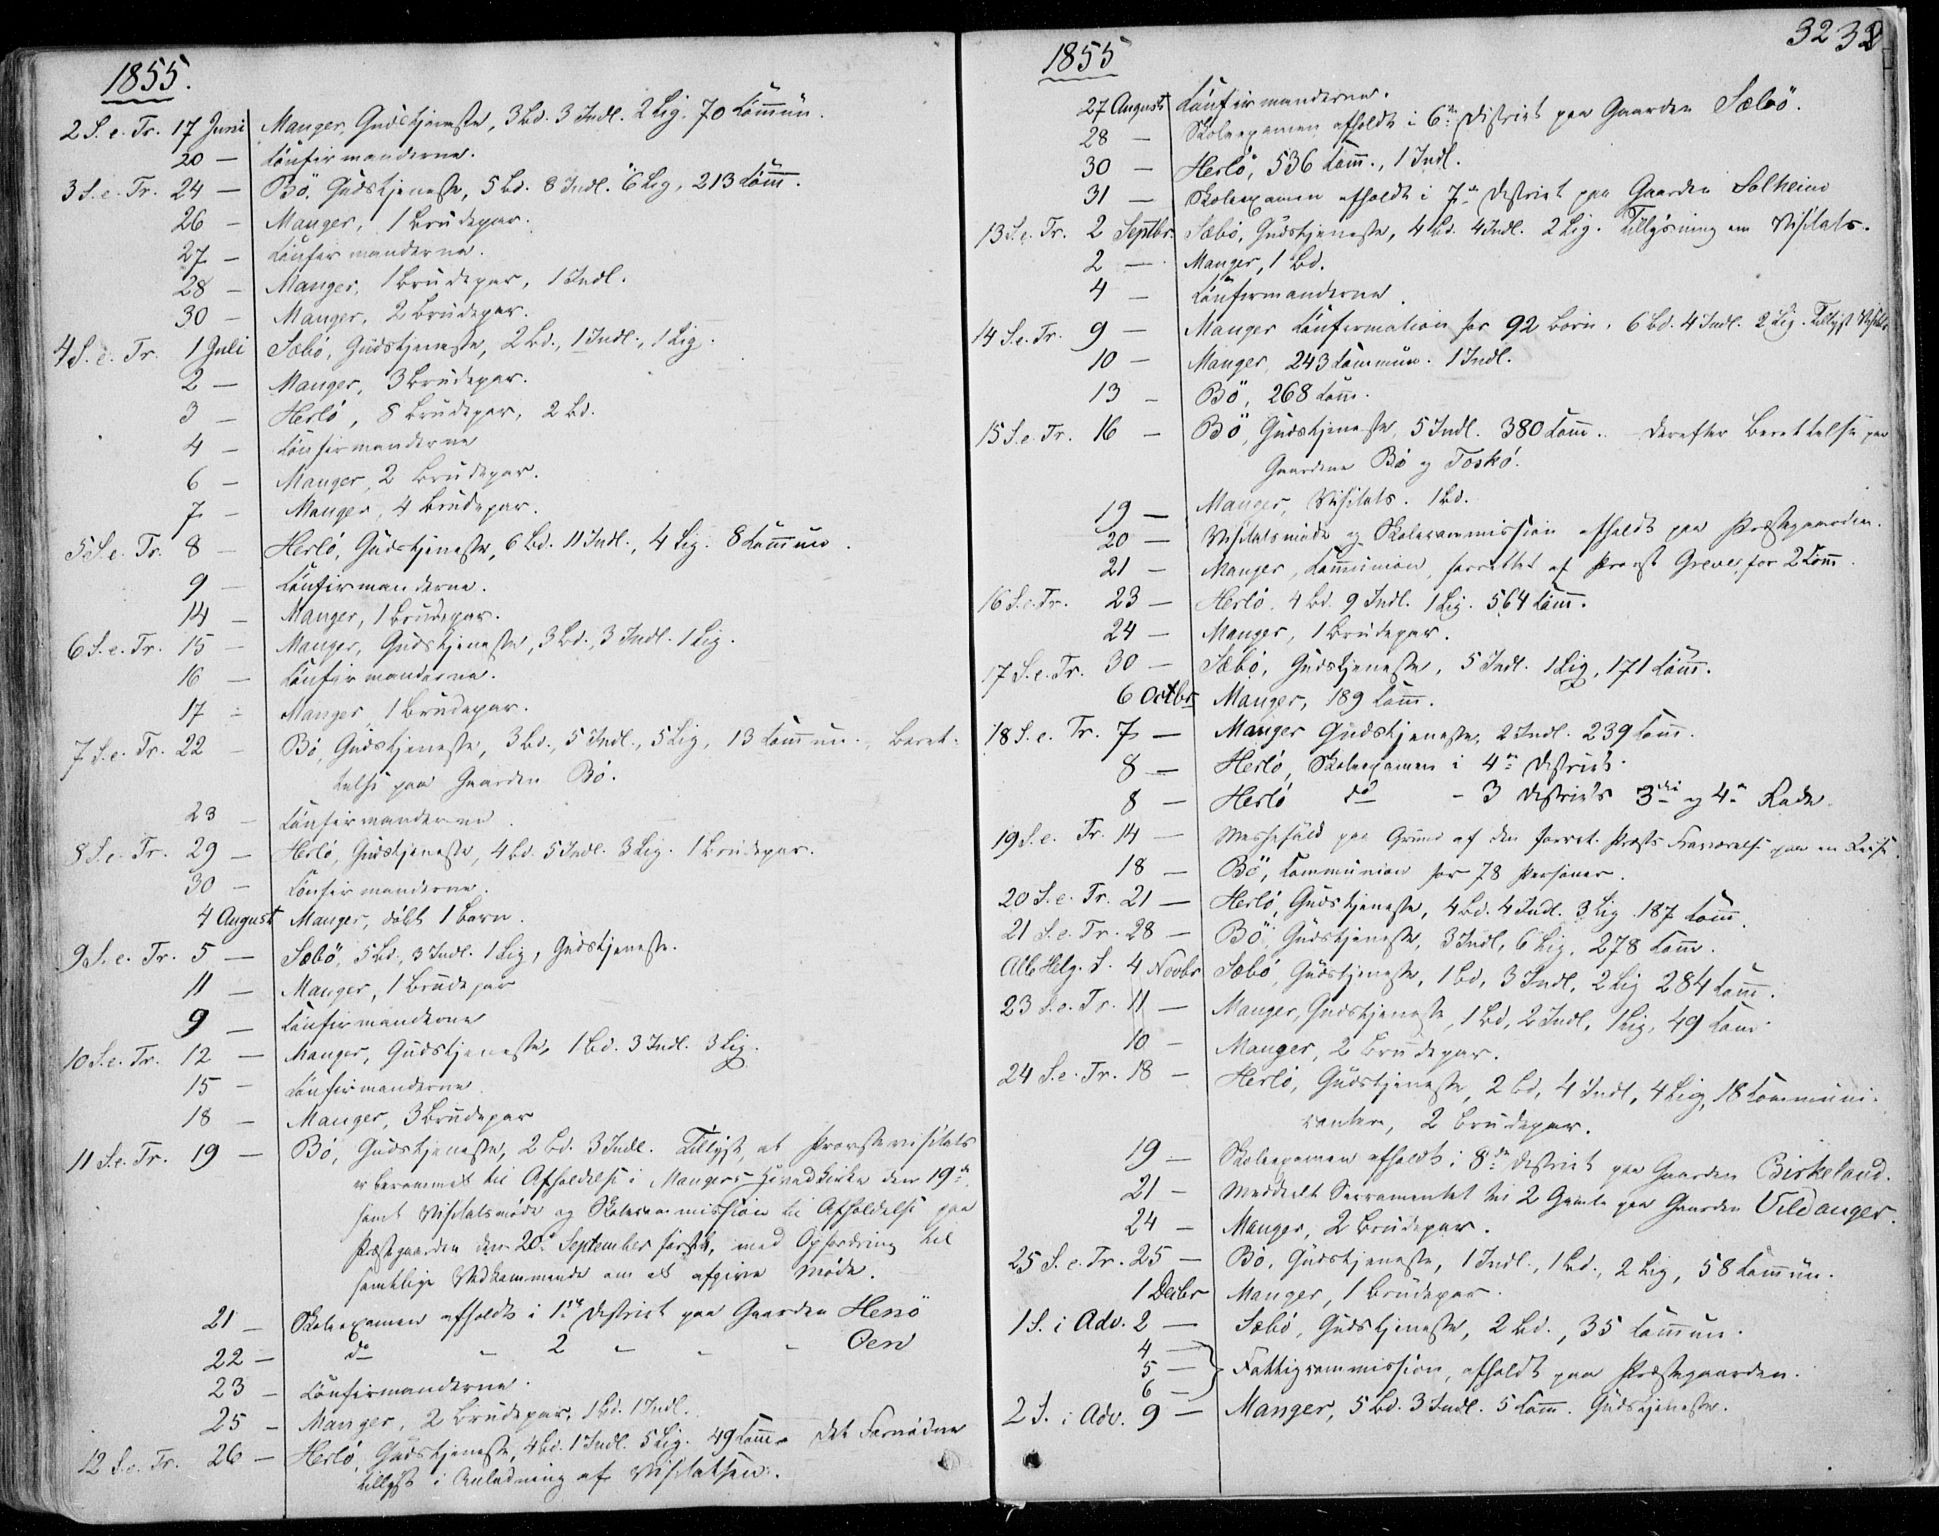 1855.
2 S. e. Tr. 17 Juni Manger, Gudstjeneste, 3 Bd. 3 Indl. 2 Lig. 70 Commun.
20 — Confirmanderne.
3 S. e. Tr. 24 — Bö, Gudstjeneste, 5 Bd. 8 Indl. 6 Lig, 213 Comm.
26 — Manger, 1 Brudepar.
27 — Confirmanderne.
28 — Manger, 1 Brudepar, 1 Indl.
30 — Manger, 2 Brudepar.
4 S. e. Tr. 1 Juli Sæbö, Gudstjeneste, 2 Bd., 1 Indl., 1 Lig.
2 — Manger, 3 Brudepar.
3 — Herlö, 8 Brudepar, 2 Bd.
4 — Confirmanderne
6 — Manger, 2 Brudepar.
7 — Manger, 4 Brudepar.
5 S. e. Tr. 8 — Herlö, Gudstjeneste, 6 Bd. 11 Indl., 4 Lig. 8 Commun.
9 — Confirmanderne.
14 — Manger, 1 Brudepar.
6 S. e. Tr. 15 — Manger, Gudstjeneste, 3 Bd., 3 Indl. 1 Lig.
16 — Confirmanderne.
17 — Manger, 1 Brudepar.
7 S. e. Tr. 22 — Bö, Gudstjeneste, 3 Bd., 5 Indl., 5 Lig, 13 Commun., Beret-
telse paa Gaarden Bö.
23 — Confirmanderne.
8 S. e. Tr. 29 — Herlö, Gudstjeneste, 4 Bd. 5 Indl. 3 Lig. 1 Brudepar.
30 — Confirmanderne.
4 August Manger, döbt 1 Barn.
9 S. e. Tr. 5 — Sæbö, 5 Bd., 3 Indl. 1 Lig, Gudstjeneste.
11 — Manger, 1 Brudepar
9 — Confirmanderne
10 S. e. Tr. 12 — Manger, Gudstjeneste, 1 Bd. 3 Indl. 3 Lig.
15 — Confirmanderne
18 — Manger, 3 Brudepar
11 S. e. Tr. 19 — Bö, Gudstjeneste, 2 Bd. 3 Indl. Tillyst, at Provstevisitats
er berammet til Afholdelse i Mangers Hovedkirke den 19de
samt Visitatsmöde og Skolecommission til Afholdelse paa
Præstegaarden den 20de September förstk, med Opfordring til
samtlige Vedkommende om at afgive Möde.
21 — Skoleexamen afholdt i 1ste District paa Gaarden Hernö
22 — do — 2 — — — Oen
23 — Confirmanderne.
25 — Manger, 2 Brudepar, 1 Bd. 1 Indl.
12 S. e. Tr. 26 — Herlö, Gudstjeneste, 4 Bd. 1 Indl. 5 Lig. 49 Comm. Det Fornödne
tillyst i Anledning af Visitatsen.
3232
1855
27 August Confirmanderne.
28 — Skoleexamen afholdt i 6te District paa Gaarden Sæbö.
30 — Herlö, 536 Comm., 1 Indl.
31 — Skoleexamen afholdt i 7de District paa Gaarden Solheim
13 S. e. Tr. 2 Septbr. Sæbö, Gudstjeneste, 4 Bd. 4 Indl. 2 Lig. Tillysning om Visitats.
2 — Manger, 1 Bd.
4 — Confirmanderne.
14 S. e. Tr. 9 — Manger Confirmation for 92 Börn. 6 Bd. 4 Indl. 2 Lig. Tillyst Visitats
10 — Manger, 243 Commun. 1 Indl.
13 — Bö, 268 Com.
15 S. e. Tr. 16 — Bö, Gudstjeneste, 5 Indl. 380 Com. Derefter Berettelse paa
Gaardene Bö og Toskö.
19 — Manger, Visitats. 1 Bd.
20 — Visitatsmöde og Skolecommission afholdt paa Præstegaarden.
21 — Manger, Communion, forrettet af Provst Greve, for 2 Comm.
16 S. e. Tr. 23 — Herlö, 4 Bd. 9 Indl. 1 Lig. 564 Comm.
24 — Manger, 1 Brudepar.
17 S. e. Tr. 30 — Sæbö, Gudstjeneste, 5 Indl. 1 Lig, 171 Comm.
6 Octbr Manger, 189 Comm.
18 S. e. Tr. 7 — Manger Gudstjeneste, 2 Indl. 239 Com.
8 — Herlö, Skoleexamen i 4de District.
8 — Herlö do — 3 Districts 3die og 4de Rode.
19 S. e. Tr. 14 — Messefald paa Grund af den forret. Præsts Fraværelse paa en Reise.
18 — Bö, Communion for 78 Personer.
20 S. e. Tr. 21 — Herlö, Gudstjeneste, 4 Bd. 4 Indl. 3 Lig. 187 Comm.
21 S. e. Tr. 28 — Bö, Gudstjeneste, 3 Indl, 6 Lig, 278 Comm.
Alle Helg. S. 4 Novbr Sæbö, Gudstjeneste, 1 Bd, 3 Indl, 2 Lig 284 Com.
23 S. e. Tr. 11 — Manger, Gudstjeneste, 1 Bd, 2 Indl, 1 Lig, 49 Com.
10 — Manger, 2 Brudepar.
24 S. e. Tr. 18 — Herlö, Gudstjeneste, 2 Bd, 4 Indl, 4 Lig, 18 Communi-
canter, 2 Brudepar.
19 — Skoleexamen afholdt i 8de District paa Gaarden Birkeland.
21 — Meddelt Sacramentet til 2 Gamle paa Gaarden Vildanger.
24 — Manger, 2 Brudepar.
25 S. e. Tr. 25 — Bö, Gudstjeneste, 1 Indl., 1 Bd., 2 Lig, 58 Commun.
1 Decbr Manger, 1 Brudepar.
1 S. i Adv. 2 — Sæbö, Gudstjeneste, 2 Bd., 35 Commun.
4 —
5 — } Fattigcommission, afholdt paa Præstegaarden.
6 —
2 S. i Adv. 9 — Manger, 5 Bd. 3 Indl. 5 Comm. Gudstjeneste.